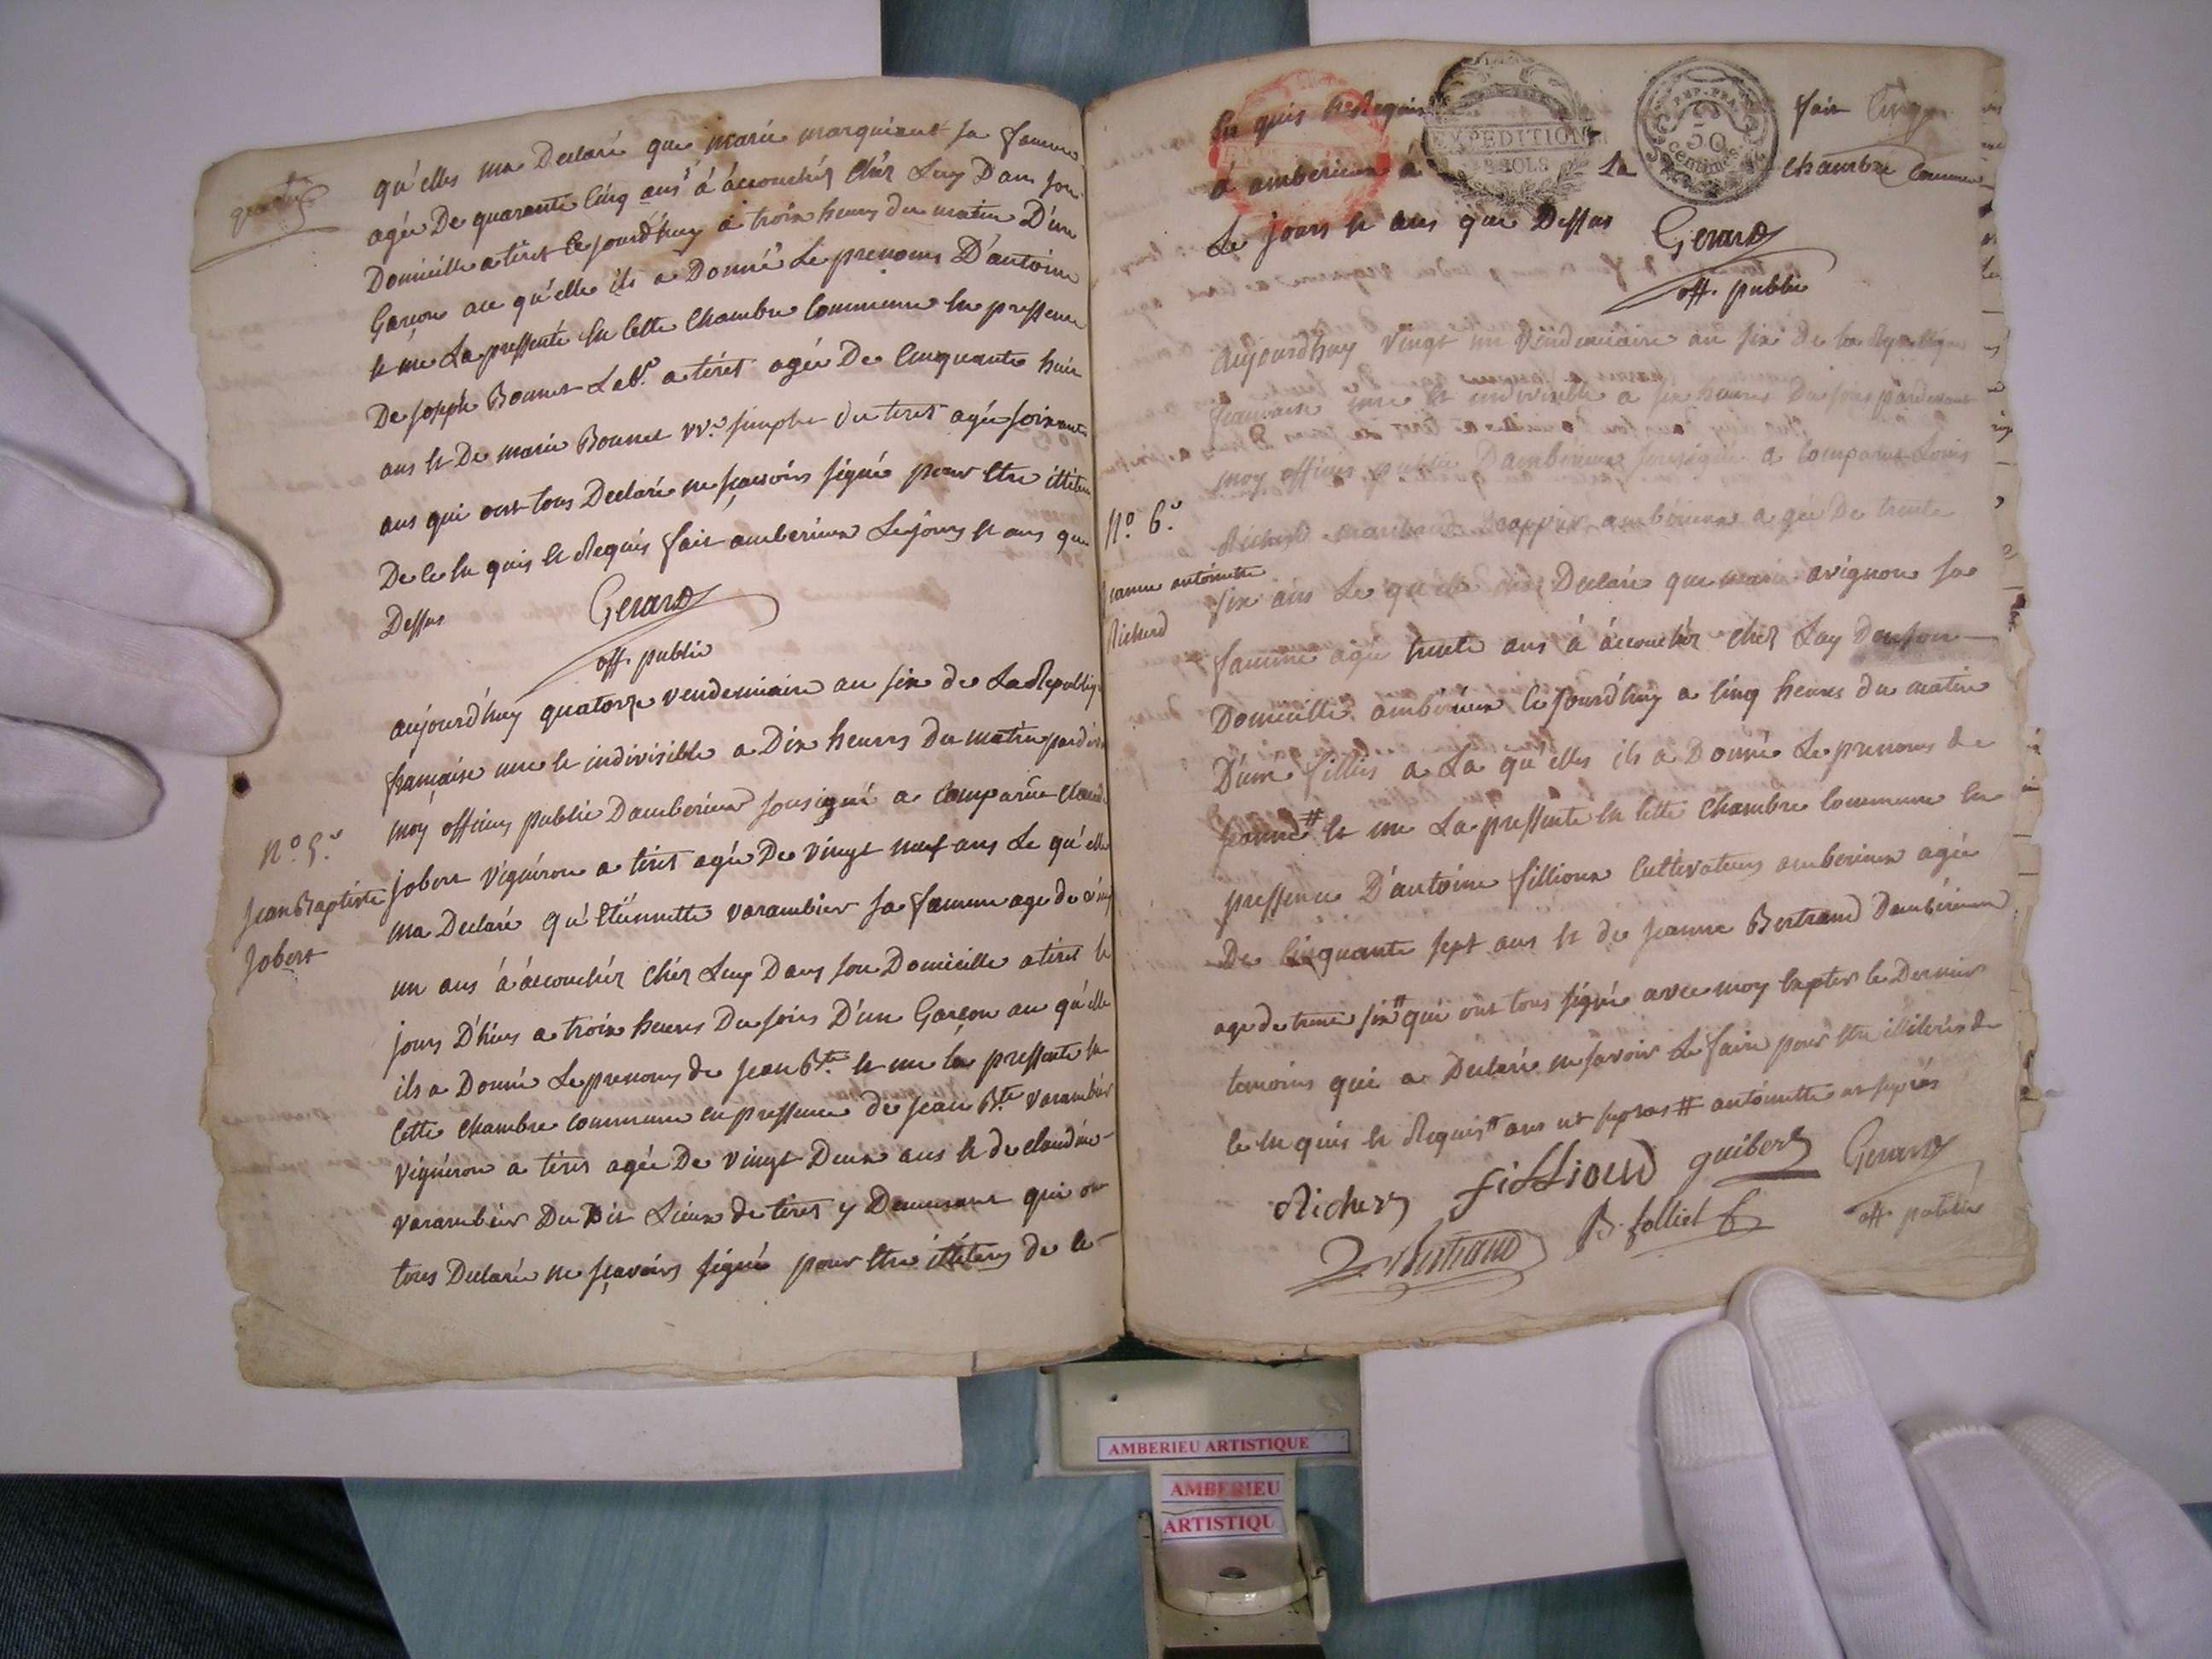 qu'elles ma Declaré que marie marquient sa femme
agée De quarante Cinq ans à accouchér chér Luy Dans son
Domicille a tiret Ce jourd'huy à troix heures du matin D'un
Garçon au qu'elle ils a Donné Le prenoms D'antoine
et me La pressenté En Cette Chambre Commune En pressence
De joseph Bonnet Lab.r a tiret agée De Cinquante huit
ans Et De marie Bonnet vv.e simple du tiret agée soixante
ans qui ont tous Declaré ne sçavoirs signé pour Etre illiteres
De Ce En quis Et Requis fait amberieux Le jours Et ans que
Dessus
Gerard
off. public
aujourd'huy quatorze vendemiaire an six de La Republiq
française une Et indivisible a Dix heures Du matin pardev
moy officier public Damberieux sousigné a Comparue Claude
N.o 5.e
Jean Baptiste
Jobert
jobert vigniron a tiret agée De vingt neuf ans Le qu'elle
ma Declaré qu'Etiennette varambier sa femme age de vingt
un ans à accouchér chér Luy Dans son Domicille a tiret le
jours D'hiers a troix heures Du soirs D'un Garçon au qu'elle
ils a Donné Le prenoms de jean B.te Et me la pressenté En
Cette Chambre Commune En pressence de jean B.te varambier
vigniron a tiret agée De vingt Deux ans Et de claudine
varambier Du Dit Lieux de tiret y Demeurant qui ont
tous Declaré ne sçavoirs signé pour Etre illiteres de Ce
En quis Et Requis fait
EXPEDITION
3 SOLS
REP. FRA.
50
centimes
a amberieux à La chambre Commune
Le jours Et ans que Dessus
Gerard
off. public
aujourd'huy vingt un Vendemiaire an six De la Republique
francaise une Et indivisible a six heures Du soirs pardevant
moy officier public Damberieux sousigné a Comparue Louis
N.o 6.e
Jeanne antoinette
Richerd
Richerd amberieux agée De trente
six ans Le qu'elle Declaré que marie avignon sa
famme agée trente ans à accouchér chér Luy Dans son
Domicille amberieux Ce jourd'huy a Cinq heures du matin
D'une fillies a La qu'elles ils a Donné Le prenoms de
jeanne # Et me La pressenté En Cette Chambre Commune En
pressence D'antoine fillioux Cultivateurs amberieux agée
De Cinquante sept ans Et de jeanne Bertrand Damberieux
age de trente six # qui ont tous signé avec moy Exepter le Dernier
temoins qui a Declaré ne savoir Le faire pour Etre illiterés de
Ce En quis Et Requis # ans ut supras # antoinette ut supras
Richerd fillioud guibert Gerard
Bertrand B. folliet off. public
AMBERIEU ARTISTIQUE
AMBERIEU
ARTISTIQU